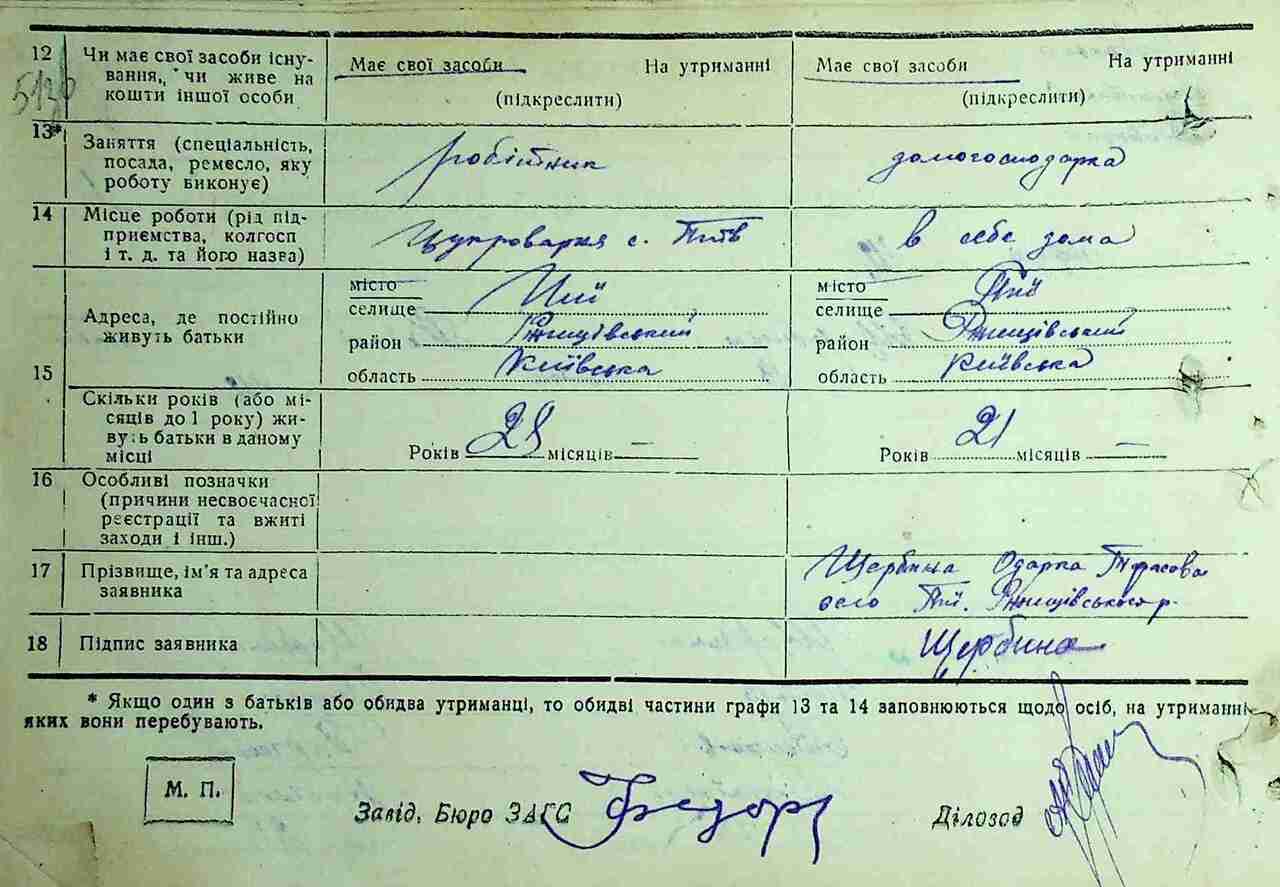 12 Чи має свої засоби існу-
вання, чи живе на
кошти іншої особи
Має свої засоби На утриманні
(підкреслити)
Має свої засоби На утриманні
(підкреслити)
513
13* Заняття (спеціальність,
посада, ремесло, яку
роботу виконує)
робітник
домогосподарка
14 Місце роботи (рід під-
приємства, колгосп
і т. д. та його назва)
Цукроварня с.
в себе дома
15 Адреса, де постійно
живуть батьки
місто
селище Пії
район Ржищівський
область Київська
місто
селище Пії
район Ржищівський
область Київська
Скільки років (або мі-
сяців до 1 року) жи-
вуть батьки в даному
місці
Років 28 місяців —
Років 21 місяців —
16 Особливі позначки
(причини несвоєчасної
реєстрації та вжиті
заходи і інш.)
17 Прізвище, ім'я та адреса
заявника
Щербина Одарка Тарасова
село Пії. Ржищівського р.
18 Підпис заявника
Щербина
* Якщо один з батьків або обидва утриманці, то обидві частини графи 13 та 14 заповнюються щодо осіб, на утриманні
яких вони перебувають.
М. П.
Завід. Бюро ЗАГС Федор
Діловод